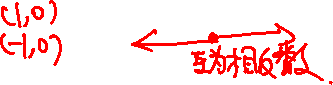 (1,0)
(-1,0)
互为相反数.